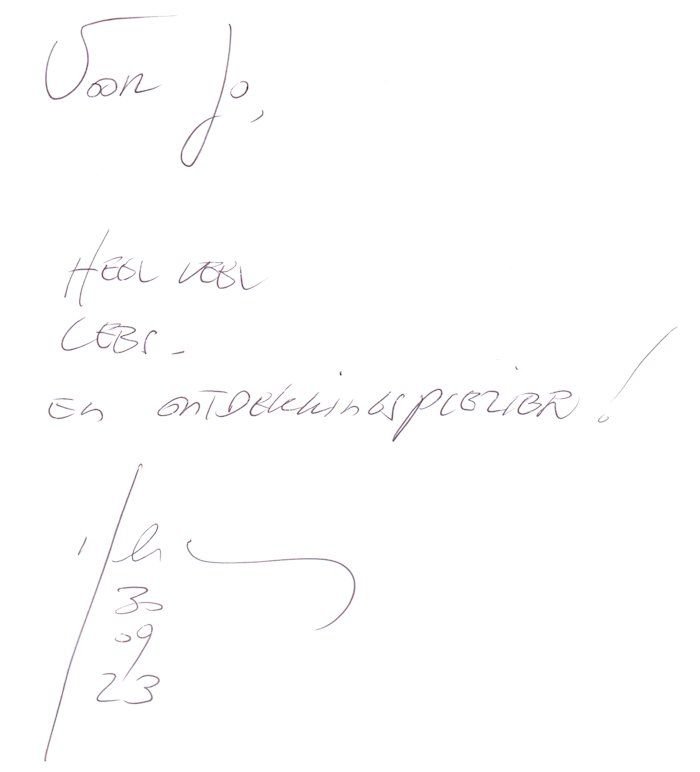 Voor Jo,
HEEL VEEL
LEES-
EN ONTDEKKINGSPLEZIER!
30
09
23